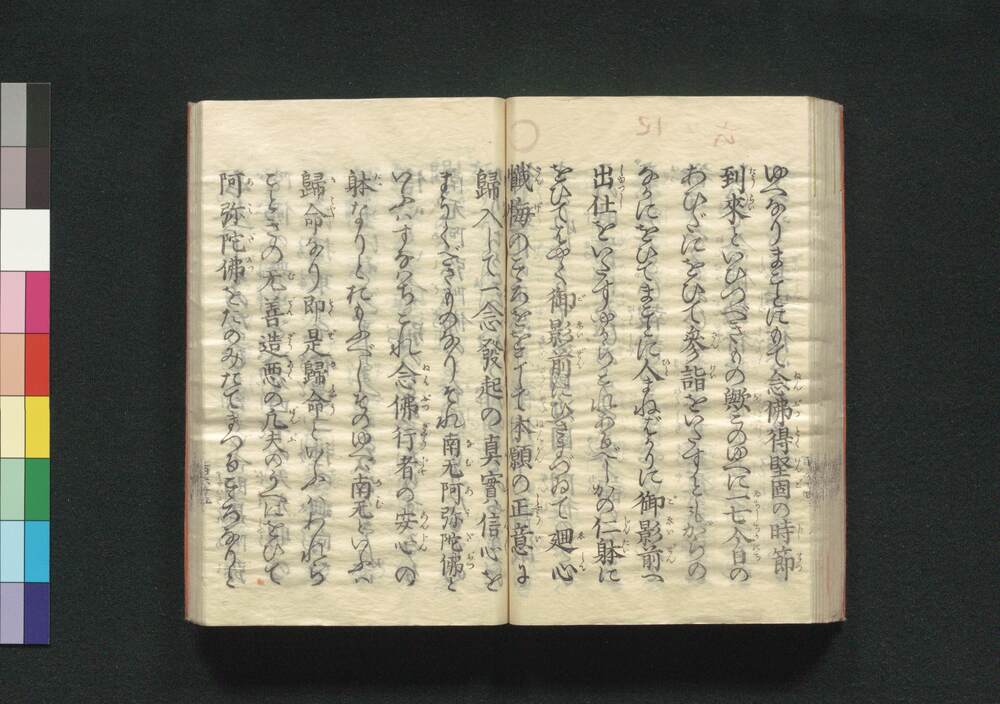 ゆへなりまことにもて念佛得堅固の時節
到來といひつべきもの歟このゆへに一七ケ日の
あひだにをひて參詣をいたすともがらの
なかにをひてまことに人まねばかりに御影前へ
出仕をいたすやからこれあるべしかの仁躰に
をひてはやく御影前にひざまづゐて廻心
懺悔のこゝろををこして本願の正意に
歸入して一念發起の眞實信心を
まうくべきものなりそれ南无阿弥陀佛と
いふはすなはちこれ念佛行者の安心の
躰なりとおもふべしそのゆへは南无といふは
歸命なり即是歸命といふはわれら
ごときの无善造悪の凡夫のうへにをひて
阿弥陀佛をたのみたてまつるこゝろなりと
六
12